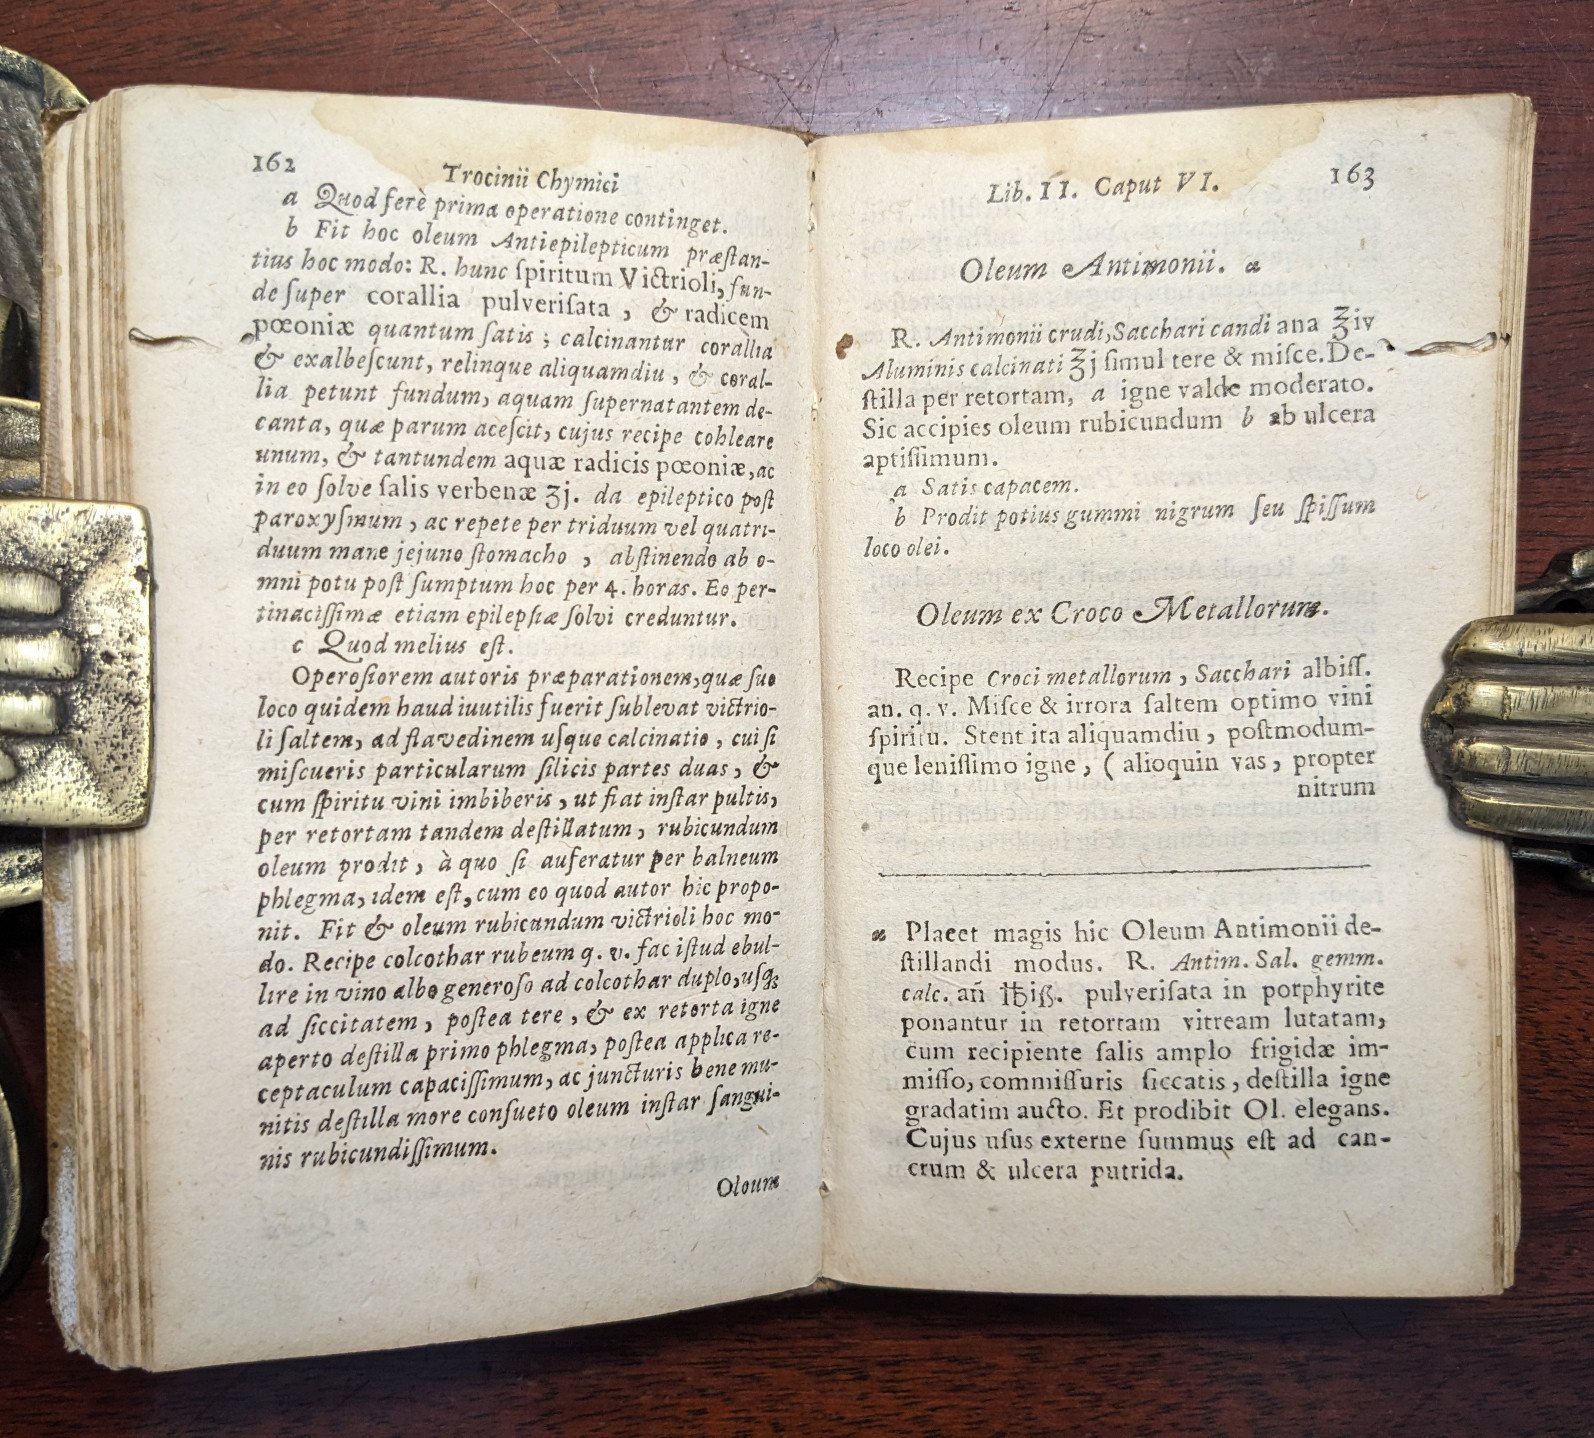 162
Trocinii Chymici
a Quod ferè prima operatione continget.
b Fit hoc oleum Antiepilepticum præſtan-
tius hoc modo: R. hunc ſpiritum Victrioli, fun-
de ſuper corallia pulveriſata, & radicem
pœoniæ quantum ſatis; calcinantur corallia
& exalbeſcunt, relinque aliquamdiu, & coral-
lia petunt fundum, aquam ſupernatantem de-
canta, quæ parum aceſcit, cujus recipe cohleare
unum, & tantundem aquæ radicis pœoniæ, ac
in eo ſolve ſalis verbenæ ʒj. da epileptico poſt
paroxyſmum, ac repete per triduum vel quatri-
duum mane jejuno ſtomacho, abſtinendo ab o-
mni potu poſt ſumptum hoc per 4. horas. Eo per-
tinaciſſimæ etiam epilepſiæ ſolvi creduntur.
c Quod melius eſt.
Operoſiorem autoris præparationem, quæ ſuo
loco quidem haud iuutilis fuerit ſublevat victrio-
li ſaltem, ad flavedinem uſque calcinatio, cui ſi
miſcueris particularum ſilicis partes duas, &
cum ſpiritu vini imbiberis, ut fiat inſtar pultis,
per retortam tandem deſtillatum, rubicundum
oleum prodit, à quo ſi auferatur per balneum
phlegma, idem eſt, cum eo quod autor hic propo-
nit. Fit & oleum rubicundum victrioli hoc mo-
do. Recipe colcothar rubeum q. v. fac iſtud ebul-
lire in vino albo generoſo ad colcothar duplo, uſq;
ad ſiccitatem, poſtea tere, & ex retorta igne
aperto deſtilla primo phlegma, poſtea applica re-
ceptaculum capaciſſimum, ac juncturis bene mu-
nitis deſtilla more conſueto oleum inſtar ſangui-
nis rubicundiſſimum.
Oloum
Lib. II. Caput VI.
163
Oleum Antimonii. a
R. Antimonii crudi, Sacchari candi ana ℥iv
Aluminis calcinati ℥j ſimul tere & miſce. De-
ſtilla per retortam, a igne valde moderato.
Sic accipies oleum rubicundum b ab ulcera
aptiſſimum.
a Satis capacem.
b Prodit potius gummi nigrum ſeu ſpiſſum
loco olei.
Oleum ex Croco Metallorum.
Recipe Croci metallorum, Sacchari albiſſ.
an. q. v. Miſce & irrora ſaltem optimo vini
ſpiritu. Stent ita aliquamdiu, poſtmodum-
que leniſſimo igne, (alioquin vas, propter
nitrum
a Placet magis hic Oleum Antimonii de-
ſtillandi modus. R. Antim. Sal. gemm.
calc. an̄ ℔iß. pulveriſata in porphyrite
ponantur in retortam vitream lutatam,
cum recipiente ſalis amplo frigidæ im-
miſſo, commiſſuris ſiccatis, deſtilla igne
gradatim aucto. Et prodibit Ol. elegans.
Cujus uſus externe ſummus eſt ad can-
crum & ulcera putrida.